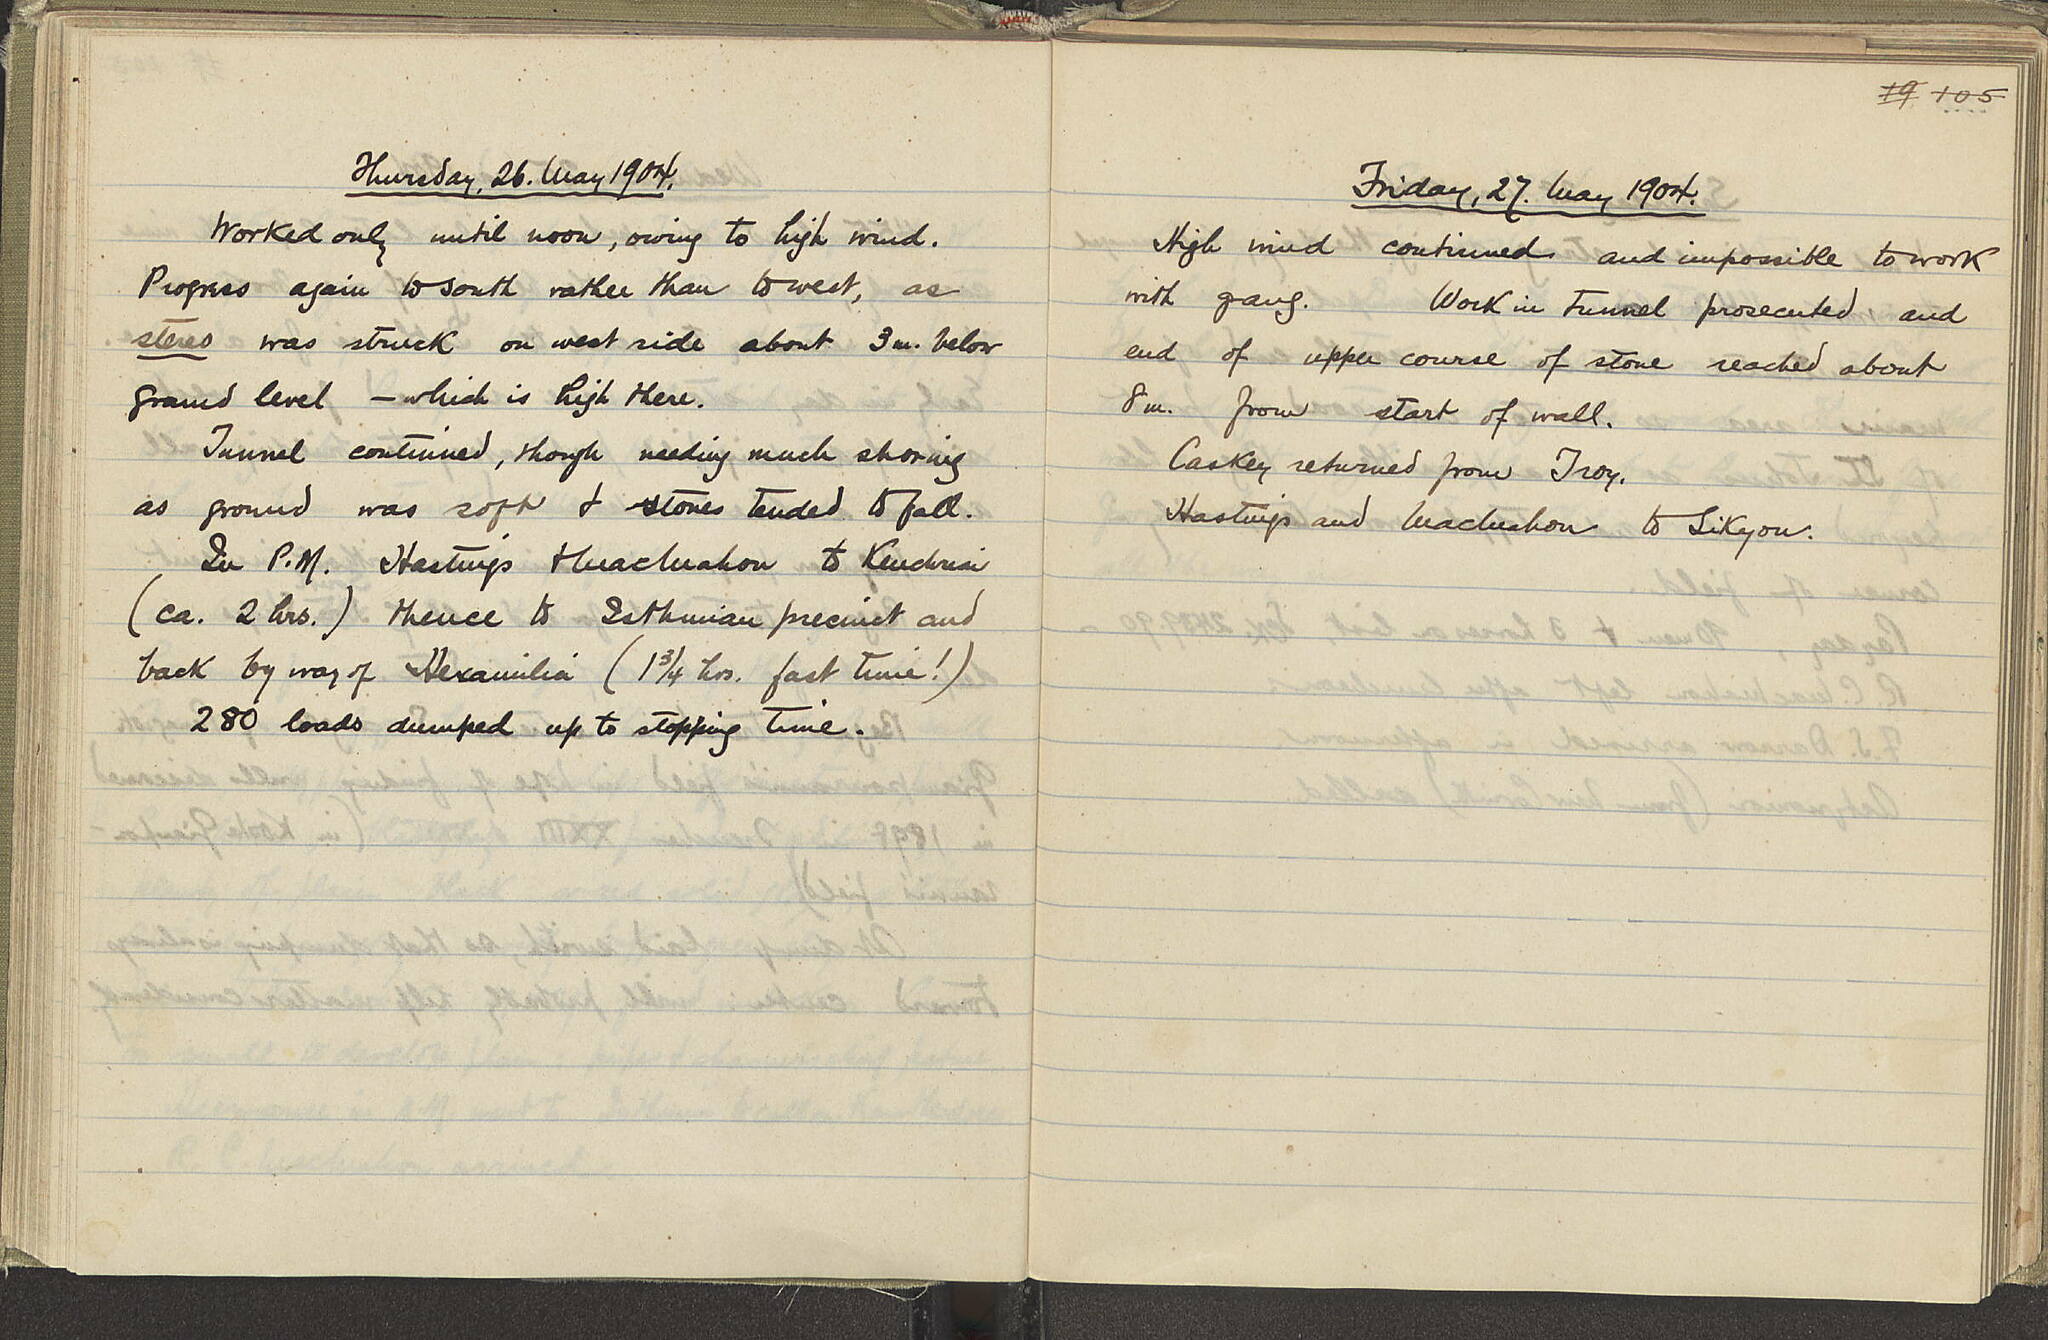 Thursday, 26. May 1904.
Worked only until noon, owing to high wind.
Progress again to south rather than to west, as
stereo was struck on west side about 3 m. below
ground level – which is high there.
Tunnel continued, though needing much shoring
as ground was soft & stones tended to fall.
In P.M. Hastings & MacMahon to Kenchriai
(ca. 2 hrs.) thence to Isthmian precinct and
back by way of Hexamilia (1 3/4 hrs. fast time!)
280 loads dumped up to stopping time.
19 105
Friday, 27. May 1904.
High wind continued and impossible to work
with gang. Work in tunnel prosecuted, and
end of upper course of stone reached about
8 m. from start of wall.
Caskey returned from Troy.
Hastings and MacMahon to Sikyon.